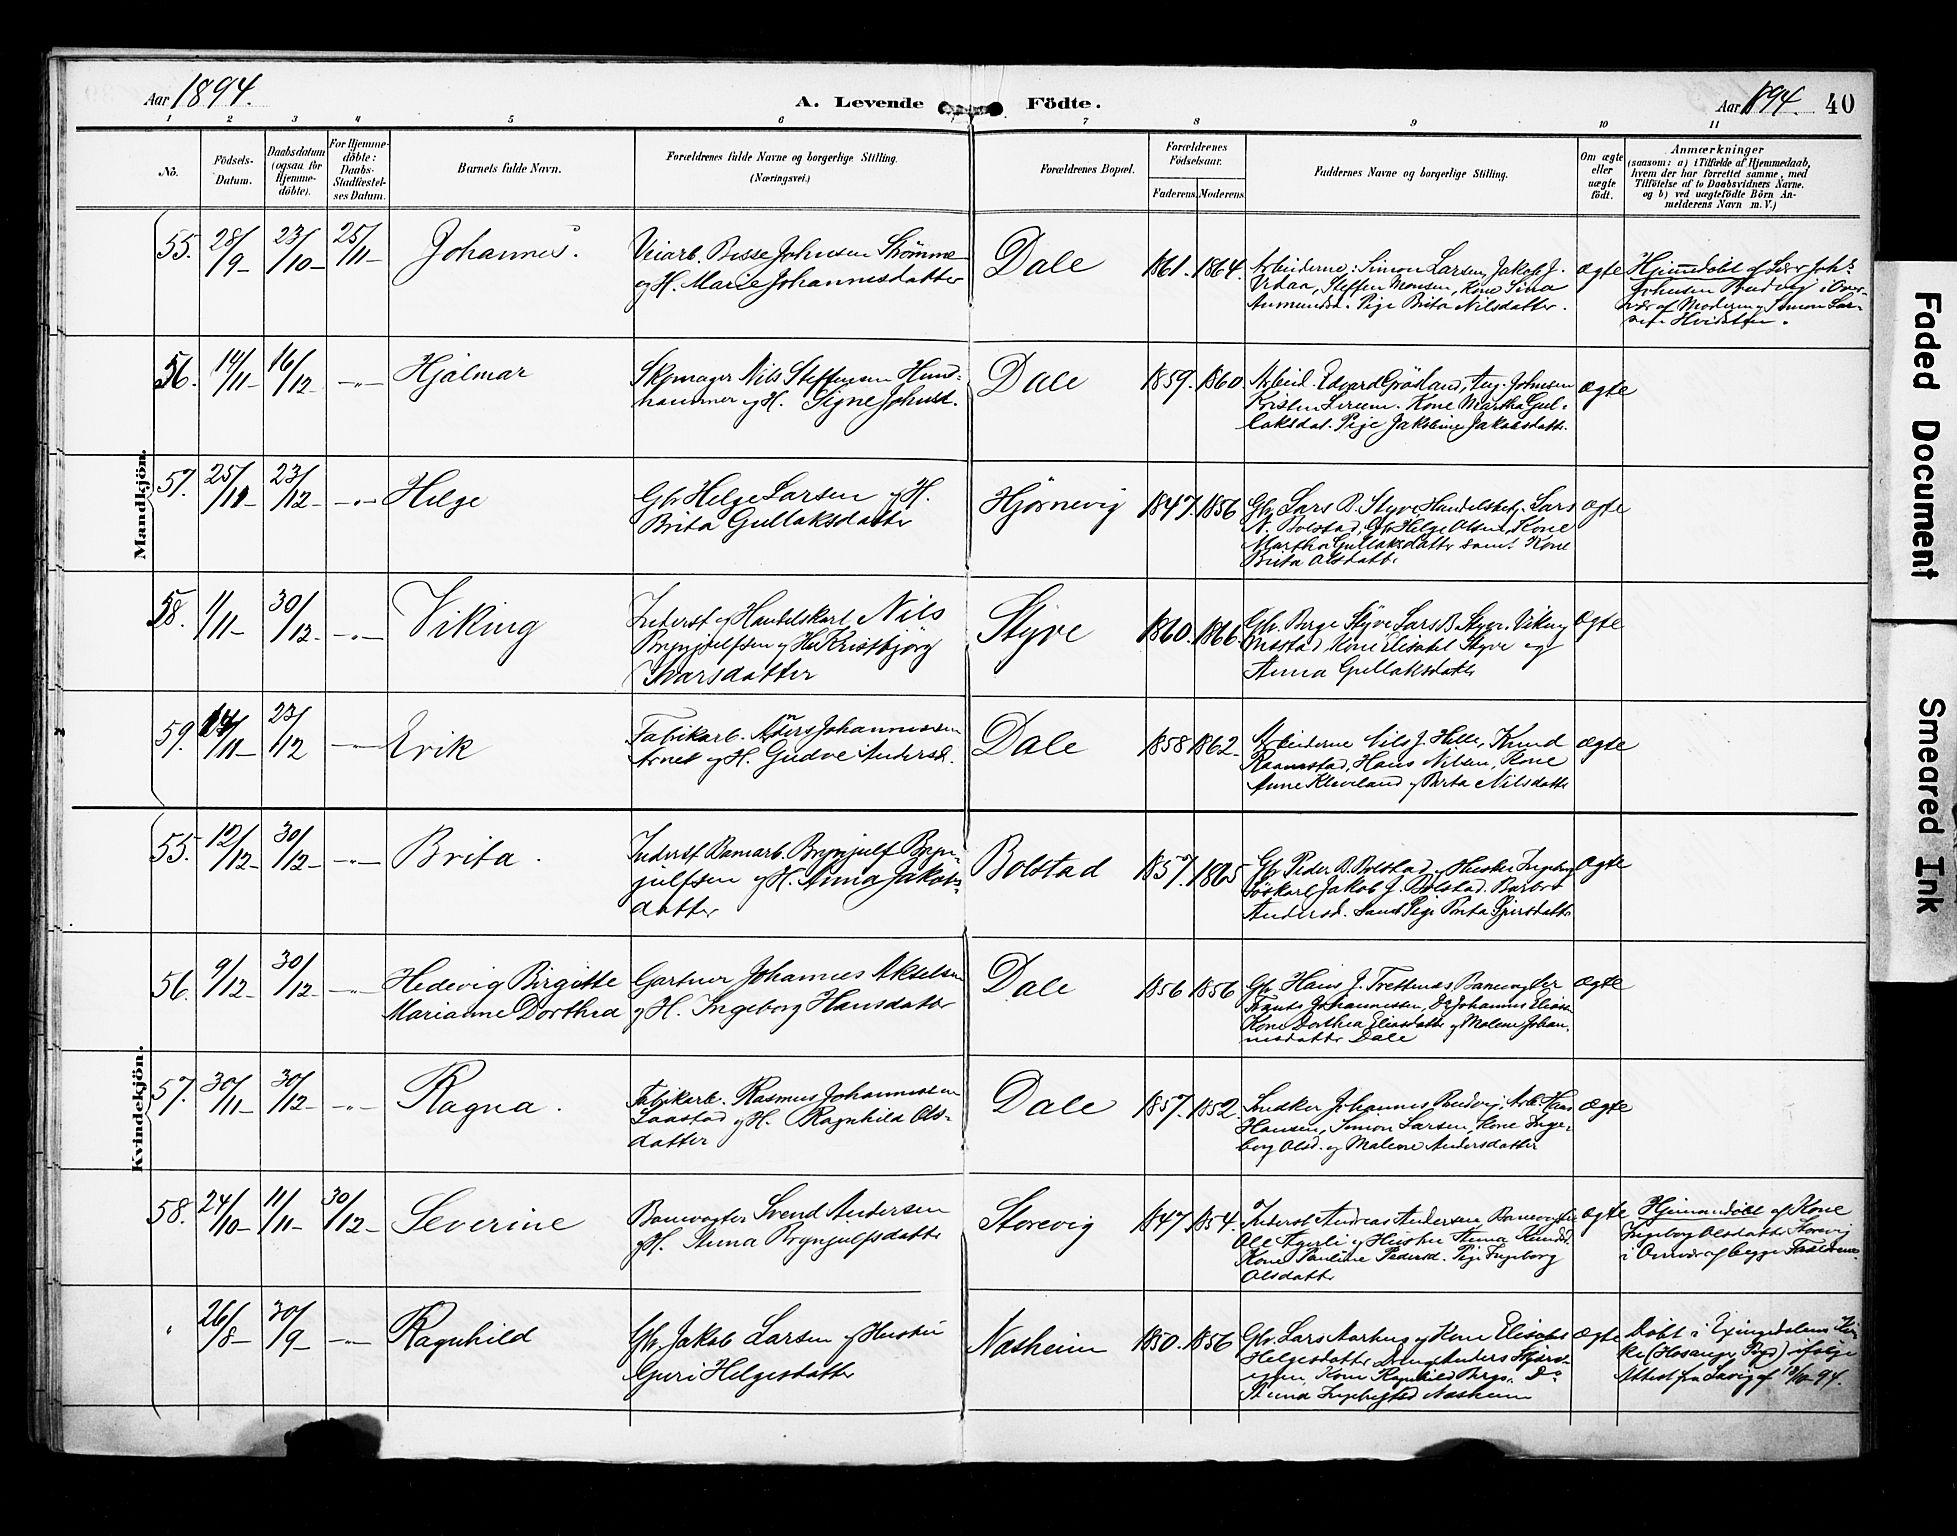 Aar 1894.
A. Levende Födte.
Aar 1894. 40
1 2 3 4 5 6 7 8 9 10 11
No.
Födsels-Datum.
Daabsdatum (ogsaa for Hjemmedöbte).
For Hjemmedöbte: Daabs-Stadfæstelses Datum.
Barnets fulde Navn.
Forældrenes fulde Navne og borgerlige Stilling. (Næringsvei.)
Forældrenes Bopæl.
Forældrenes Födselsaar.
Faderens. Moderens.
Faddernes Navne og borgerlige Stilling.
Om ægte eller uægte födt.
Anmærkninger
(saasom: a) i Tilfælde af Hjemmedaab, hvem der har forrettet samme, med Tilföielse af to Daabsvidners Navne. og b) ved uægtefödte Börn Anmelderens Navn m. V.)
Mandkjön.
55. 28/9- 23/10- 25/11- Johannes.
Veiarb. Besse Johnsen Strømme
og H. Marie Johannesdatter
Dale 1861. 1864.
Arbeiderne: Simon Larsen, Jakob J.
Urdaa, Steffen Monsen, Kone Sina
Aamundsd. Pige Brita Nilsdatter.
ægte
Hjemdøbt af Lær Johs
Johnsen i Over-
vær af Moderen og Simon Lar-
sen
56. 14/11- 16/12- -"- Hjalmar
Skomager Nils Steffensen Hund-
hammer og H. Signe Johnsd.
Dale 1859. 1860
Arbeid. Edvard Gråsland, Aug. Johnsen
Kristen Kone Martha Gul-
laksdat. Pige Jakobine Jakobsdatter.
ægte
57. 25/11- 23/12- -"- Helge
Gbr Helge Larsen og H.
Brita Gullaksdatter
Hjørnevig 1847. 1856
Gbr Lars B. Styve Handelsbetj. Lars
N. Bolstad, Gbr Helge Olsen, Kone
Martha Gullaksdatter samt Kone
Brita Olsdatter
ægte
58. 1/11- 30/12- -"- Viking
Inderst og Handelskarl Nils
Brynjulfsen og Hu Kristbjörg
Ivarsdatter
Styve 1860. 1866.
Gbr. Børge Styve Lars B Styve. Viking
Kone Elisabet Styve og
Anna Gullaksdatter
ægte
59. 14/11- 23/12 -"- Erik
Fabrikarb. Anders Johannessen
Arnes og H. Gudve Andersd.
Dale 1858 1862-
Arbeiderne Nils J. Helle, Knud
Hans Nilsen, Kone
Anne Kleiveland og Brita Nilsdatter
ægte
Kvindekjön.
55. 12/12- 30/12- -"- Brita.
Inderst Banearb. Brynjulf Bryn-
julfsen og H. Anna Jakobs-
datter
Bolstad 1857. 1865
Gbr Peder B. Bolstad, Hustru Ingeborg
Løskarl Jakob J. Bolstad. Barbro
Andersd. samt Pige Brita
ægte
56. 9/12- 30/12- -"- Hedevig Birgitte
Marianne Dorthea
Gartner Johannes Akselsen
og H. Ingeborg Hansdatter
Dale 1856 1856
Gbr Hans J. Trettenæs Banevogter
Johannessen, Do Johannes Eliasen
Kone Dorthea Eliasdatter og Malene Johan-
nesdatter Dale
ægte
57. 30/11- 30/12- -"- Ragna.
Fabrikarb. Rasmus Johannessen
Saastad og H. Ragnhild Ols-
datter
Dale 1857. 1852.
Snedker Johannes Arb. Hans
Hansen, Simon Larsen, Kone Inge-
borg Olsd. og Malene Andersdatter
ægte
58. 24/10- 11/11- 30/12- Severine
Banevogter Svend Andersen
og H. Anna Brynjulfsdatter
Storevig 1847 1854.
Inderst Andreas Andersen, Banevogter
Ole og Hustru Anna Knudsd.
Kone Pauline Pedersd. Pige Ingeborg
Olsdatter
ægte
Hjemmedöbt af Kone
Ingeborg Olsdatter Storevig
i Overvær af begge Forældrene
" 26/8- 30/9- -"- Ragnhild
Gbr. Jakob Larsen og Hustru
Guri Helgesdatter
Nasheim 1850. 1856
Gbr Lars Aarhug og Kone Elisabet
Helgesdatter Anders
Kone Ragnhild Do
Anna Nasheim
ægte
Döbt i Exingedalens Kir-
ke (Hosanger Prgj) ifølge
Attest fra af 13/10 94.
Faded Document
Smeared Ink